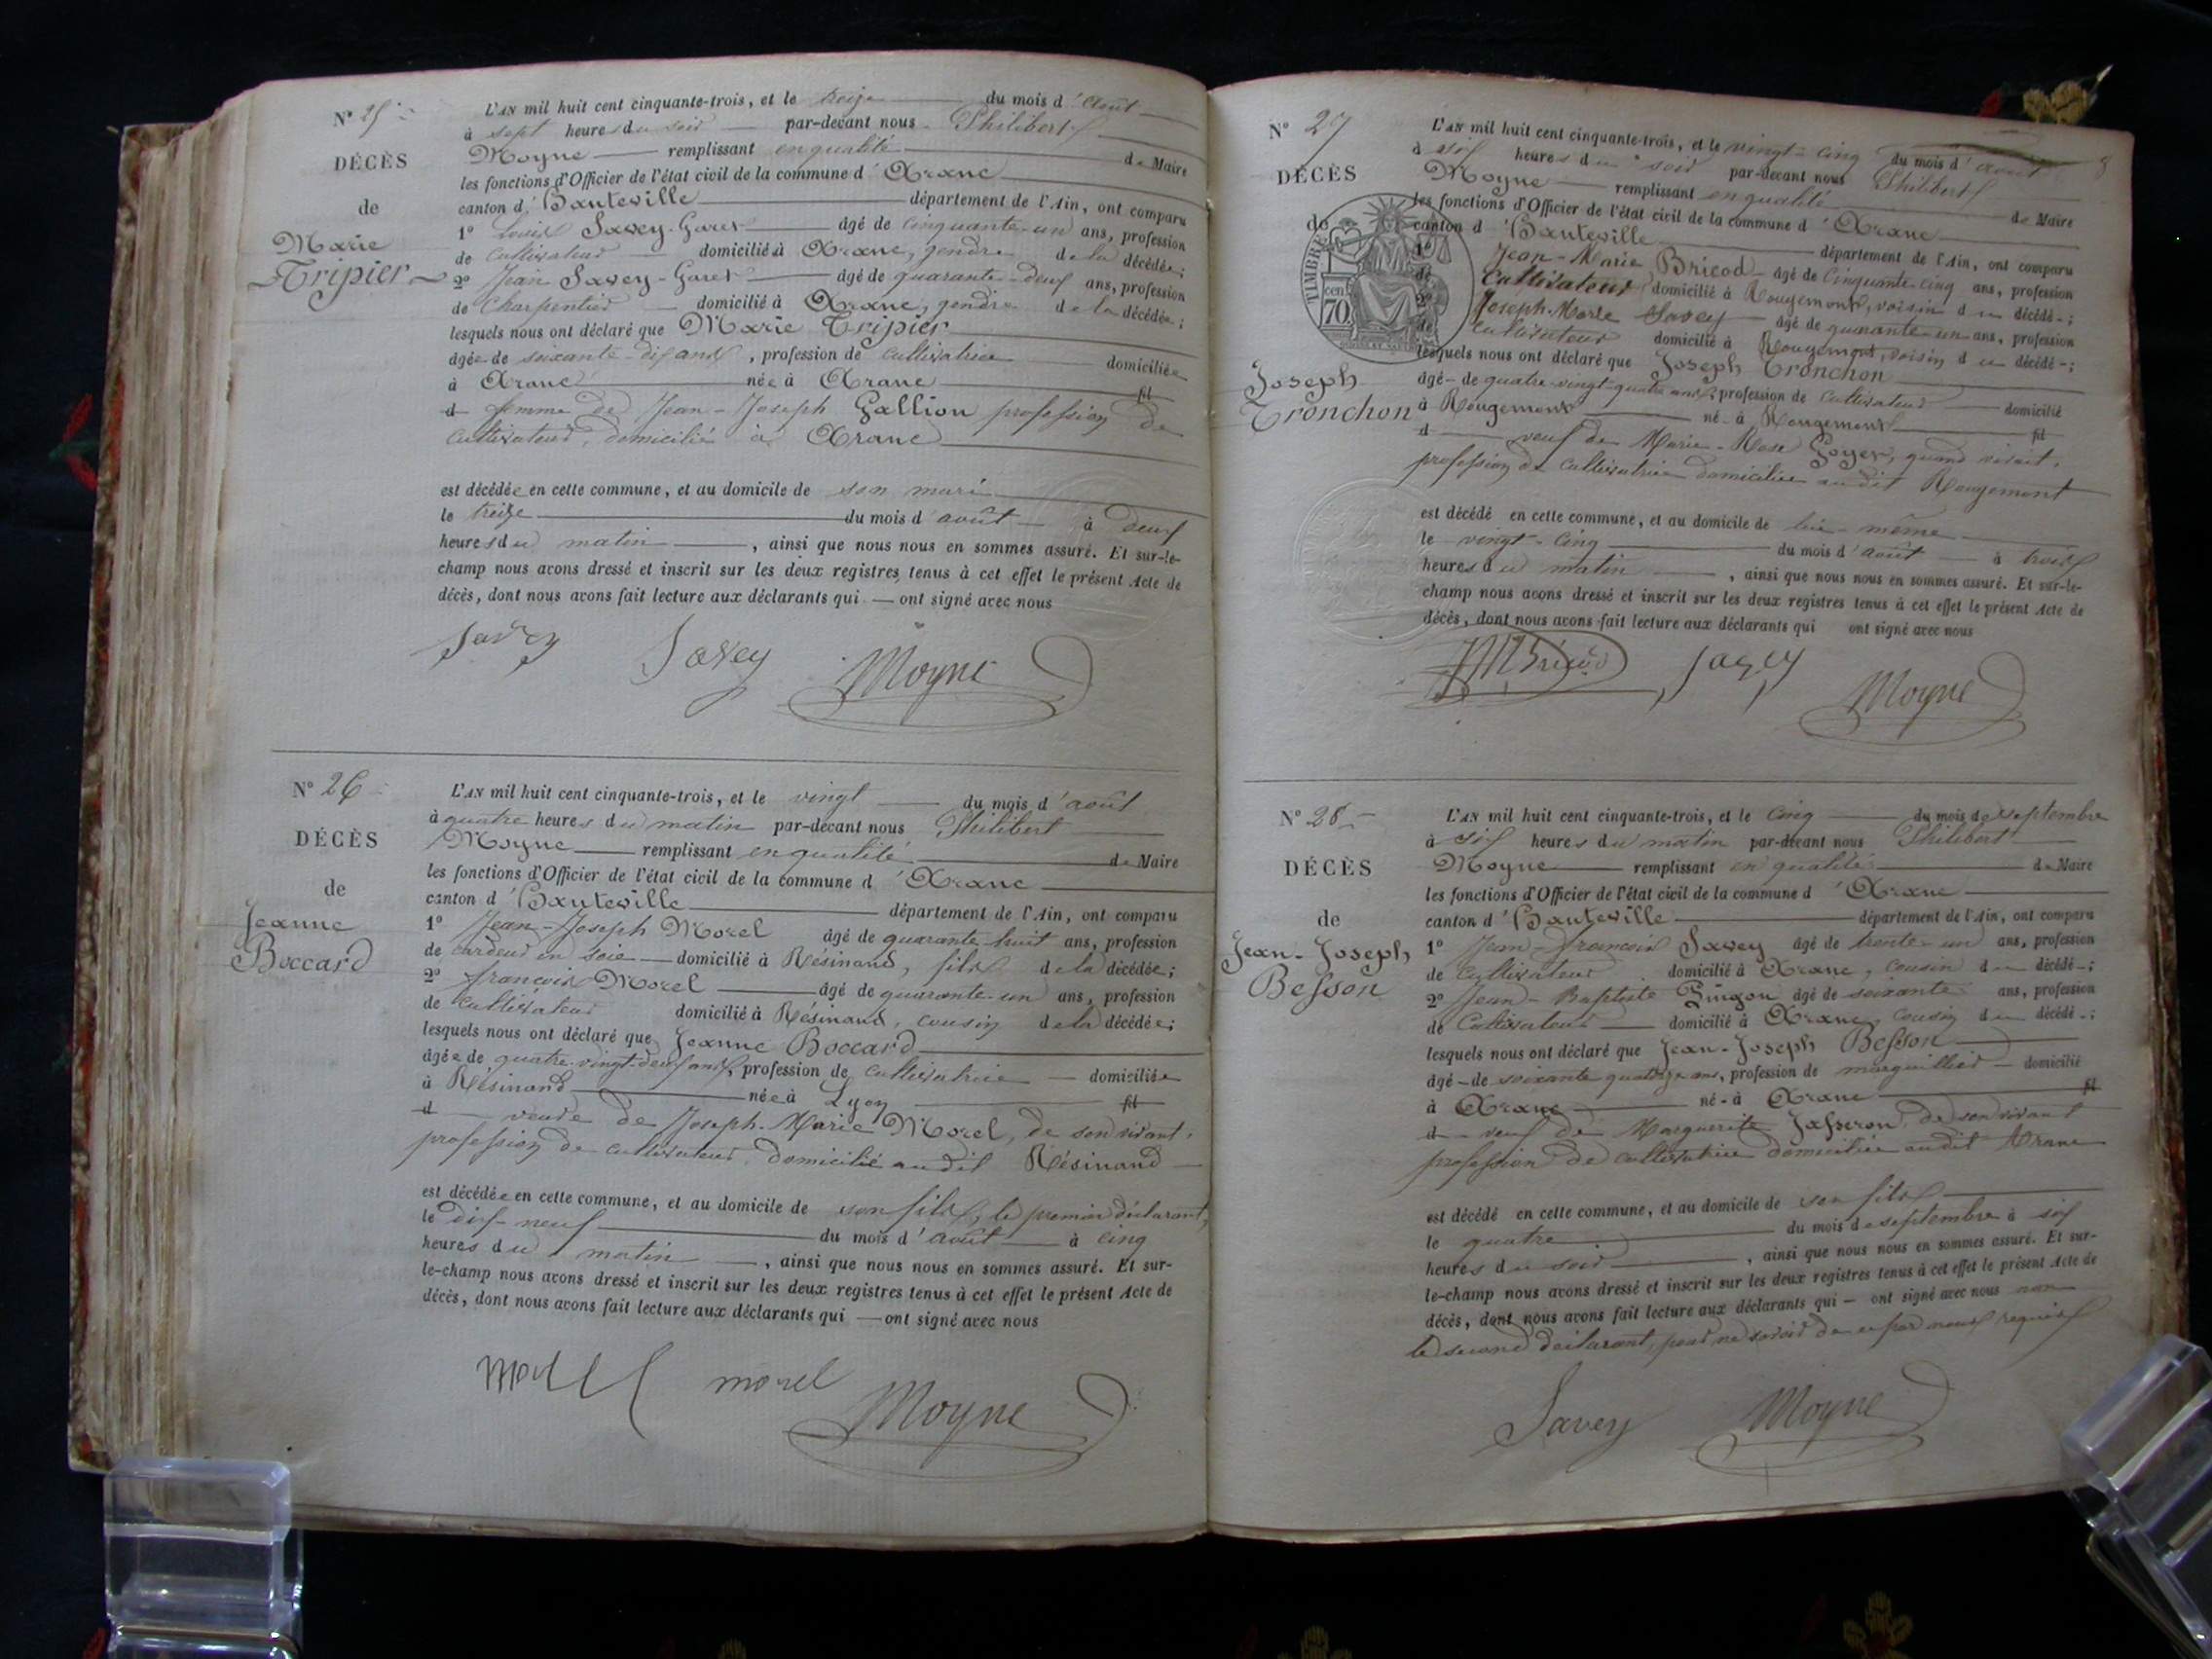 N° 25
DÉCÈS
de
Marie
Tripier
L'AN mil huit cent cinquante-trois, et le treize du mois d'août
à sept heures du soir par-devant nous Philibert
Moyne remplissant en qualité de Maire
les fonctions d'Officier de l'état civil de la commune d'Aranc
canton d'Hauteville département de l'Ain, ont comparu
1° Louis Savey-Garet âgé de cinquante-un ans, profession
de cultivateur domicilié à Aranc, gendre de la décédée;
2° Jean Savey-Garet âgé de quarante-deux ans, profession
de Charpentier domicilié à Aranc, gendre de la décédée;
lesquels nous ont déclaré que Marie Tripier
âgée de soixante-dix ans, profession de cultivatrice domiciliée
à Aranc née à Aranc fil
d femme de Jean-Joseph Gallion profession de
cultivateur, domicilié à Aranc
est décédée en cette commune, et au domicile de son mari
le treize du mois d'août à deux
heures du matin, ainsi que nous nous en sommes assuré. Et sur-le-
champ nous avons dressé et inscrit sur les deux registres tenus à cet effet le présent Acte de
décès, dont nous avons fait lecture aux déclarants qui ont signé avec nous
Savey Savey Moyne
N° 26
DÉCÈS
de
Jeanne
Boccard
L'AN mil huit cent cinquante-trois, et le vingt du mois d'août
à quatre heures du matin par-devant nous Philibert
Moyne remplissant en qualité de Maire
les fonctions d'Officier de l'état civil de la commune d'Aranc
canton d'Hauteville département de l'Ain, ont comparu
1° Jean-Joseph Morel âgé de quarante-huit ans, profession
de cardeur en soie domicilié à Résinand, fils de la décédée;
2° françois Morel âgé de quarante-un ans, profession
de cultivateur domicilié à Résinand, cousin de la décédée;
lesquels nous ont déclaré que Jeanne Boccard
âgée de quatre-vingt-deux ans, profession de cultivatrice domiciliée
à Résinand née à Lyon fil
d veuve de Joseph-Marie Morel, de son vivant,
profession de cultivateur, domicilié audit Résinand
est décédée en cette commune, et au domicile de son fils, le premier déclarant,
le dix-neuf du mois d'août à cinq
heures du matin, ainsi que nous nous en sommes assuré. Et sur-
le-champ nous avons dressé et inscrit sur les deux registres tenus à cet effet le présent Acte de
décès, dont nous avons fait lecture aux déclarants qui ont signé avec nous
morel morel Moyne
8
N° 27
DÉCÈS
de
TIMBRE
70 cen
Joseph
Tronchon
L'AN mil huit cent cinquante-trois, et le vingt-cinq du mois d'août
à six heures du soir par-devant nous Philibert
Moyne remplissant en qualité de Maire
les fonctions d'Officier de l'état civil de la commune d'Aranc
canton d'Hauteville département de l'Ain, ont comparu
1° Jean-Marie Bricod âgé de cinquante-cinq ans, profession
de cultivateur domicilié à Rougemont, voisin du décédé;
2° Joseph-Marie Savey âgé de quarante-un ans, profession
de cultivateur domicilié à Rougemont, voisin du décédé;
lesquels nous ont déclaré que Joseph Tronchon
âgé de quatre-vingt-quatre ans, profession de cultivateur domicilié
à Rougemont né à Rougemont fil
d veuf de Marie-Rose Goyet, quand vivait,
profession de cultivatrice domiciliée audit Rougemont
est décédé en cette commune, et au domicile de lui-même
le vingt-cinq du mois d'août à trois
heures du matin, ainsi que nous nous en sommes assuré. Et sur-le-
champ nous avons dressé et inscrit sur les deux registres tenus à cet effet le présent Acte de
décès, dont nous avons fait lecture aux déclarants qui ont signé avec nous
JM Bricod Savey Moyne
N° 28
DÉCÈS
de
Jean-Joseph
Besson
L'AN mil huit cent cinquante-trois, et le cinq du mois de septembre
à six heures du matin par-devant nous Philibert
Moyne remplissant en qualité de Maire
les fonctions d'Officier de l'état civil de la commune d'Aranc
canton d'Hauteville département de l'Ain, ont comparu
1° Jean-françois Savey âgé de trente-un ans, profession
de cultivateur domicilié à Aranc, cousin du décédé;
2° Jean-Baptiste Pingon âgé de soixante ans, profession
de Cultivateur domicilié à Aranc, cousin du décédé;
lesquels nous ont déclaré que Jean-Joseph Besson
âgé de soixante quatorze ans, profession de marguillier domicilié
à Aranc né à Aranc fil
d veuf de Marguerite Jasseron, de son vivant
profession de cultivatrice domiciliée audit Aranc
est décédé en cette commune, et au domicile de son fils
le quatre du mois de septembre à six
heures du soir, ainsi que nous nous en sommes assuré. Et sur-
le-champ nous avons dressé et inscrit sur les deux registres tenus à cet effet le présent Acte de
décès, dont nous avons fait lecture aux déclarants qui ont signé avec nous non
le second déclarant, pour ne savoir de ce par nous requis
Savey Moyne